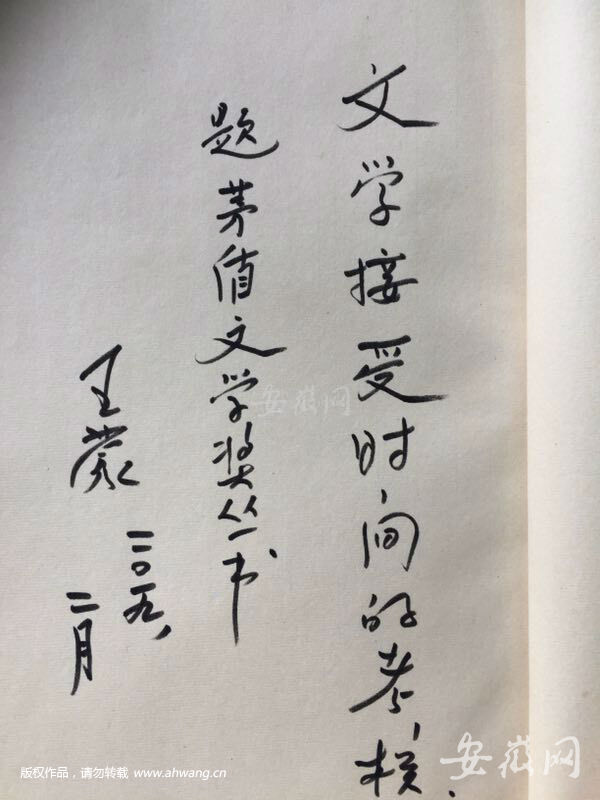 文学接受时间的考核.
题茅盾文学奖丛书
王蒙
二〇一九、
二月
安徽网
安徽网
版权作品，请勿转载 www.ahwang.cn